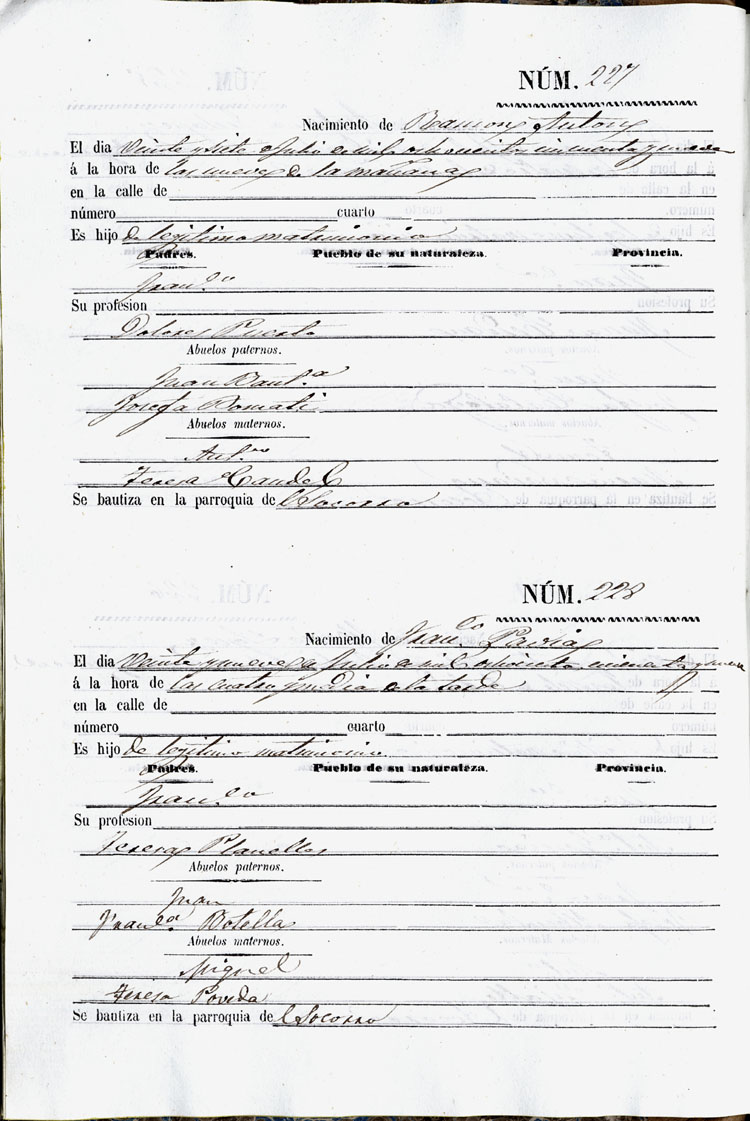 NÚM. 227
Nacimiento de Ramon Anton
El dia Veinte y siete Julio de mil ochocientos cincuenta y nueve
á la hora de las nueve de la mañana
en la calle de
número cuarto
Es hijo de legitimo matrimonio
Padres. Pueblo de su naturaleza. Provincia.
Fran.co
Su profesion
Dolores Puerto
Abuelos paternos.
Juan Baut.a
Josefa Bomati
Abuelos maternos.
Ant.o
Teresa Candel
Se bautiza en la parroquia del Socorro
NÚM. 228
Nacimiento de Fran.co
El dia Veinte y nueve Julio de mil ochocientos cincuenta y nueve
á la hora de las cuatro y media de la tarde
en la calle de
número cuarto
Es hijo de legitimo matrimonio
Padres. Pueblo de su naturaleza. Provincia.
Fran.co
Su profesion
Teresa Planelles
Abuelos paternos.
Juan
Fran.ca Botella
Abuelos maternos.
Miguel
Teresa Poveda
Se bautiza en la parroquia del Socorro